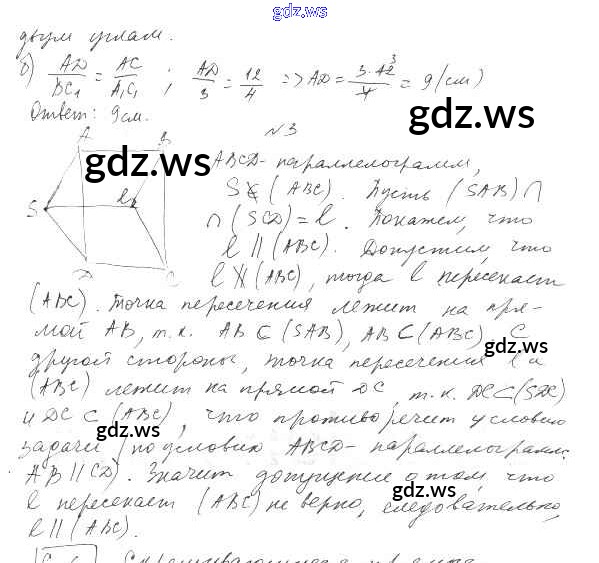 gdz.ws
двум углам.
б) AD/DC1 = AC/A1C1 ; AD/3 = 12/4 => AD = 3·12/4 = 9 (см)
Ответ: 9 см.
gdz.ws
№3
A B
gdz.ws
ABCD - параллелограмм,
S l
S ∉ (ABC). Пусть (SAB) ∩
∩ (SCD) = l. Покажем, что
l || (ABC). Допустим, что
D C
l ∦ (ABC), тогда l пересекает
(ABC). Точка пересечения лежит на пря-
мой AB, т.к. AB ⊂ (SAB), AB ⊂ (ABC). С
gdz.ws
другой стороны, точка пересечения l и
(ABC) лежит на прямой DC, т.к. DC ⊂ (SDC)
и DC ⊂ (ABC), что противоречит условию
gdz.ws
задачи (по условию ABCD - параллелограмм:
AB || CD). Значит допущение о том, что
gdz.ws
l пересекает (ABC) не верно, следовательно,
l || (ABC).